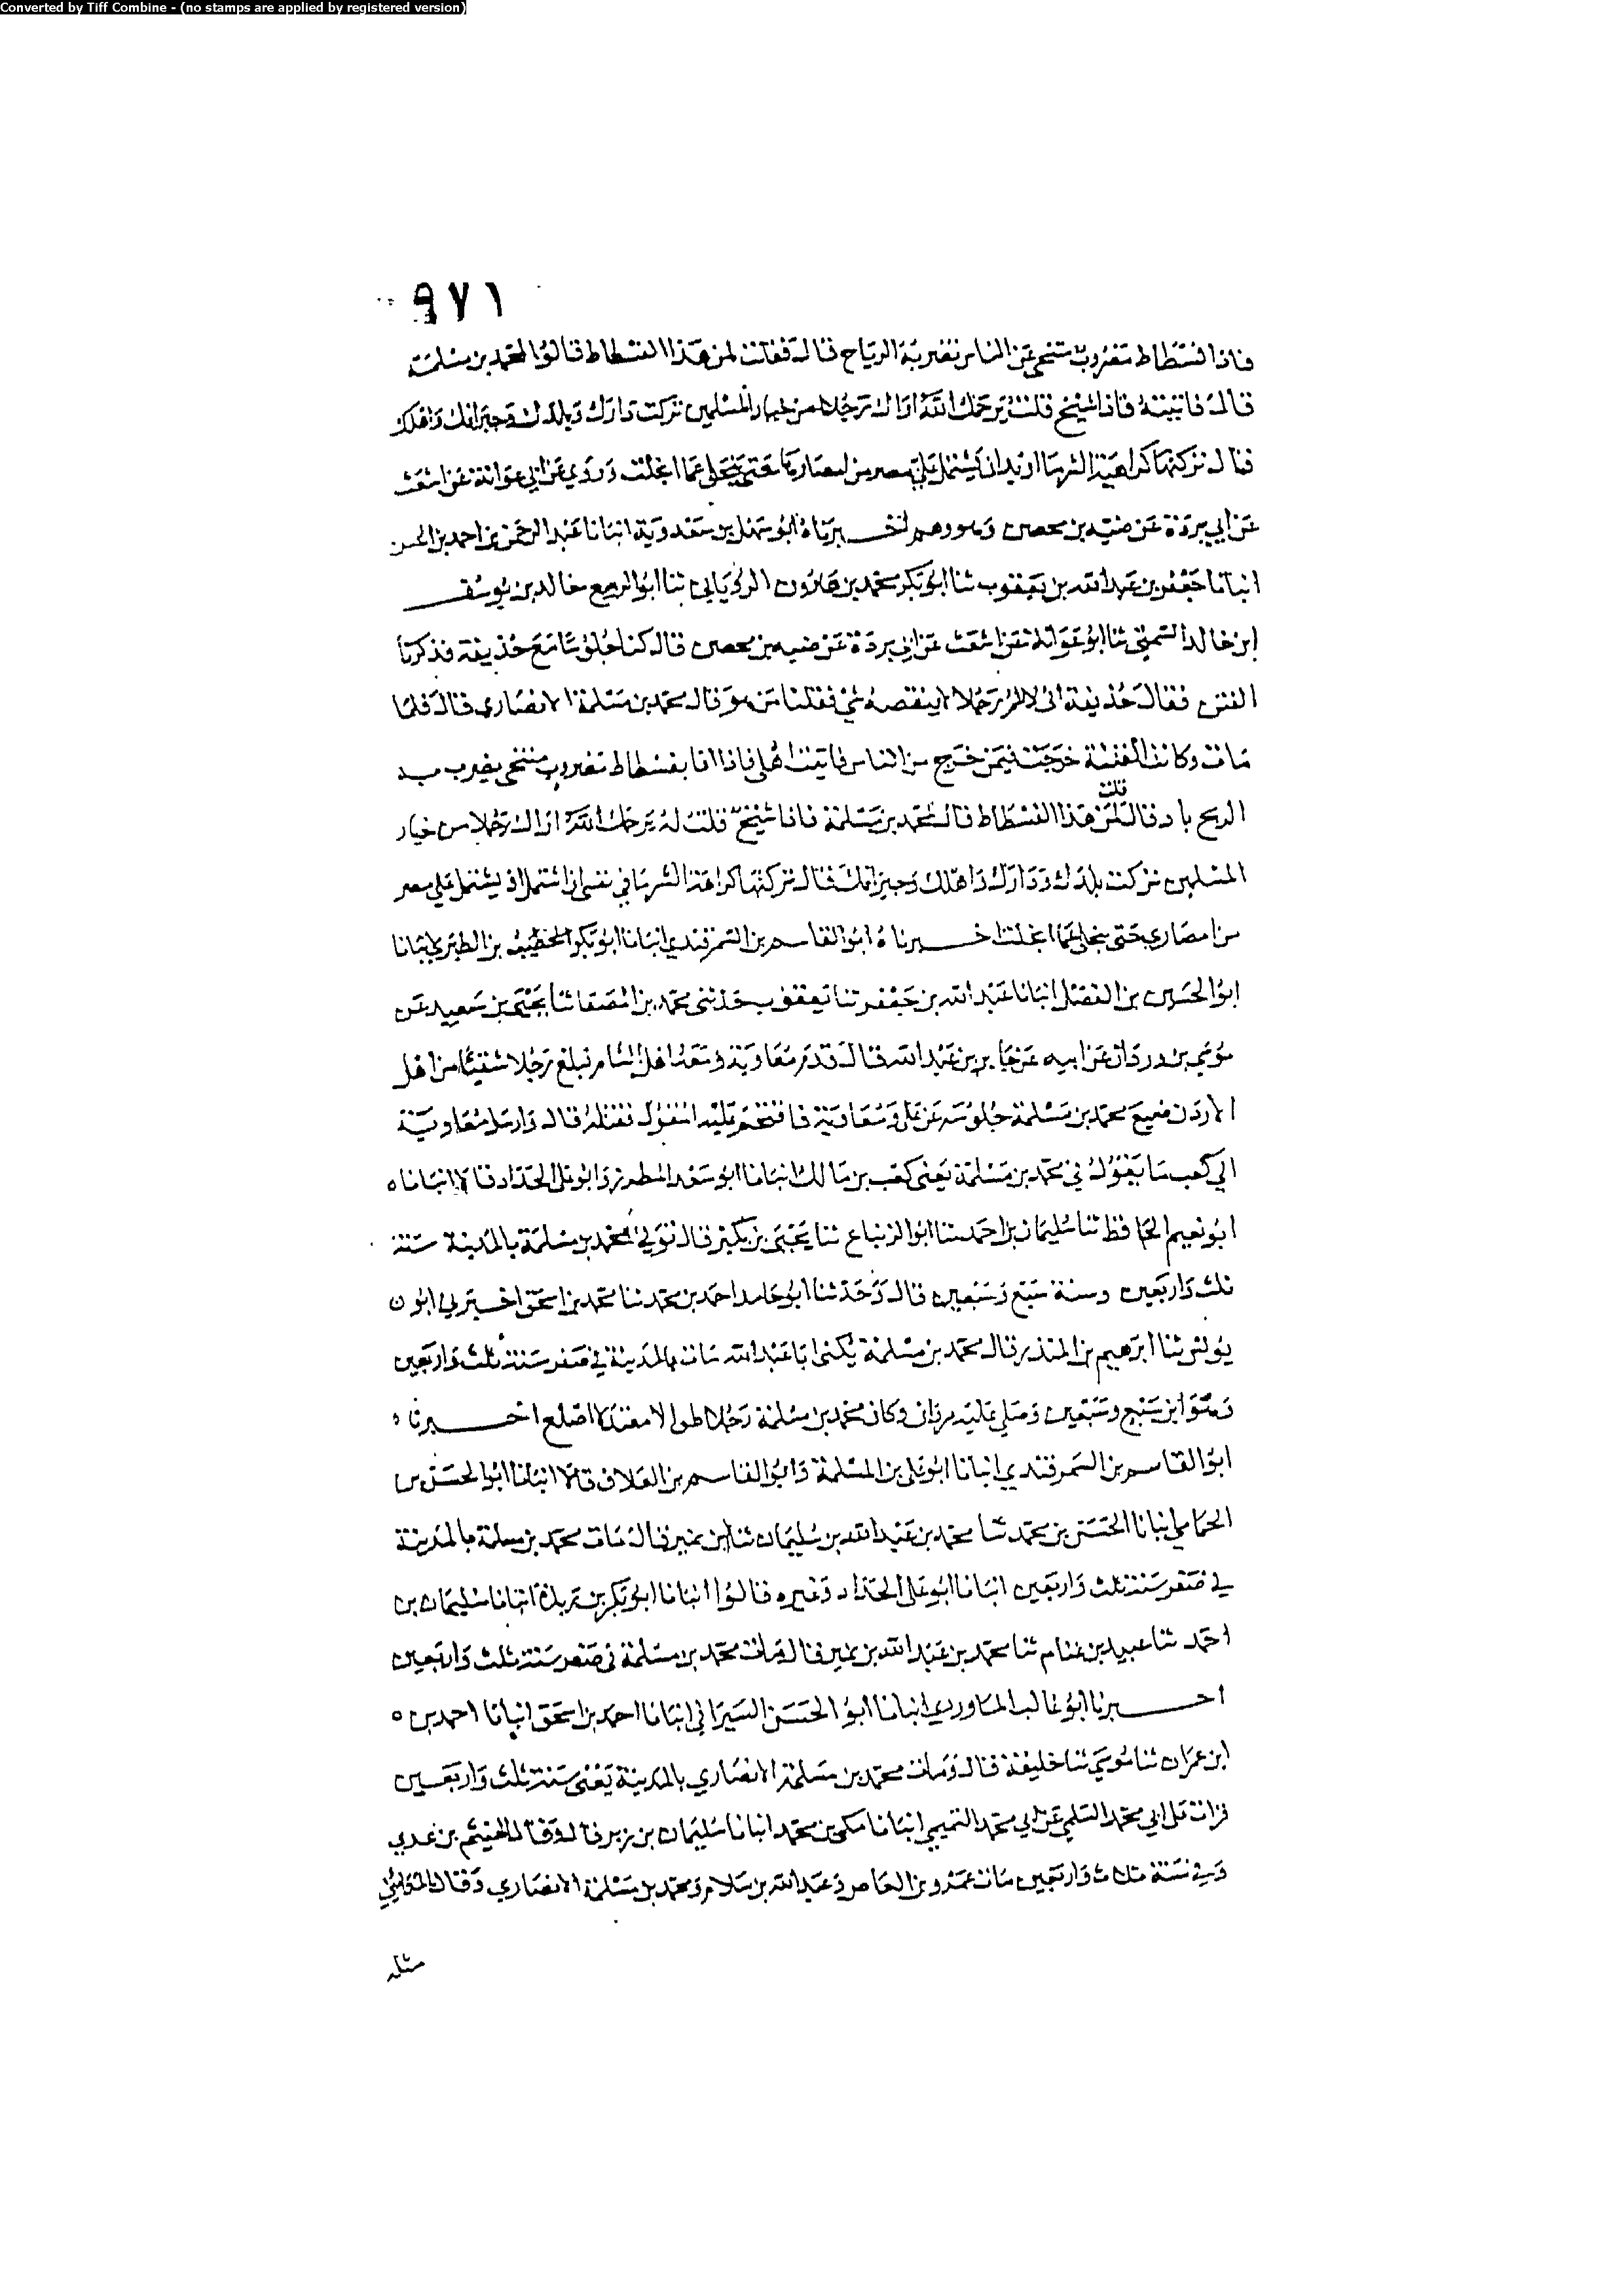 Converted by Tiff Combine - (no stamps are applied by registered version)
٩٧١
فاذا فسطاط مضروب متنحى عن الناس تضربه الرياح قال فقلت لمن هذا الفسطاط قالوا لمحمد بن مسلمة
قال فاتيته فاذا شيخ فقلت يرحمك الله اراك رجلا من خيار المسلمين تركت دارك وبلدك وجيرانك واهلك
قال تركتها كراهية الشر ما اريد ان يشتمل علي مصر من امصارها حتى تنجلي عما انجلت وروي عن ابي عوانة عن اشعث
عن ابي بردة عن ضبيه بن محصن وهو وهم اخبرناه ابو سهل بن سعدوية انبانا عبد الرحمن بن احمد بن الحسن
انبانا جعفر بن عبد الله بن يعقوب ثنا ابو بكر محمد بن هارون الروياني ثنا ابو الربيع خالد بن يوسف
ابن خالد السمتي ثنا ابو عوانة عن اشعث عن ابي بردة عن ضبيه بن محصن قال كنا جلوسا مع حذيفة فذكرنا
الفتن فقال حذيفة اني لاعلم رجلا لا ينقصه شي فقلنا من هو قال محمد بن مسلمة الانصاري قال فلما
مات وكانت الفتنة خرجت فيمن خرج من الناس فاتيت اهلي فاذا انا بفسطاط مضروب متنحى يضرب
الريح قال قلت لمن هذا الفسطاط قال لمحمد بن مسلمة فاذا شيخ قلت له يرحمك الله اراك رجلا من خيار
المسلمين تركت بلدك ودارك واهلك وجيرانك قال تركتها كراهة الشر ما في نفسي ان اشتمل او يشتمل علي مصر
من امصارى حتى ينجلي عما انجلت اخبرناه ابو القاسم بن السمرقندي انبانا ابو بكر الخطيب بن الطبري انبانا
ابو الحسين بن الفضل انبانا عبد الله بن جعفر ثنا يعقوب حدثني محمد بن المصفا ثنا يحيى بن سعيد عن
موسي بن وردان عن ابيه عن جابر بن عبد الله قال قدم معاوية ومعه اهل الشام فبلغ رجلا شقيا من اهل
الاردن محمد بن مسلمة جلوسه عن علي ومعاوية فاقتحم عليه المنزل فقتله قال وارسل معاوية
الي كعب ما يقول في محمد بن مسلمة يعني كعب بن مالك انبانا ابو سعد المطرز وابو علي الحداد قالا انبانا
ابو نعيم الحافظ ثنا سليمان بن احمد ثنا ابو الزنباع ثنا يحيى بن بكير قال توفي محمد بن مسلمة بالمدينة سنة
ثلث واربعين وسنة سبع وسبعين قال وحدثنا ابو حامد احمد بن محمد ثنا محمد بن اسحق اخبرني ابو
يونس ثنا ابرهيم بن المنذر قال محمد بن مسلمة يكنى ابا عبد الله مات بالمدينة في صفر سنة ثلث واربعين
وهو ابن سبع وسبعين وصلي عليه مروان وكان محمد بن مسلمة رجلا طوالا معتدلا اصلع اخبرنا
ابو القاسم بن السمرقندي انبانا ابو علي بن المسلمة وابو القاسم بن العلاف قالا انبانا ابو الحسن بن
الحمامي انبانا الحسن بن محمد ثنا محمد بن عبد الله بن سليمان ثنا ابن نمير قال مات محمد بن مسلمة بالمدينة
في صفر سنة ثلث واربعين انبانا ابو علي الحداد وغيره قالوا انبانا ابو بكر بن ريذة انبانا سليمان بن
احمد ثنا عبيد بن غنام ثنا محمد بن عبد الله بن نمير قال مات محمد بن مسلمة في صفر سنة ثلث واربعين
اخبرنا ابو غالب الماوردي انبانا ابو الحسن السيرافي انبانا احمد بن اسحق انبانا احمد بن
ابن عمران ثنا موسي ثنا خليفة قال ومات محمد بن مسلمة الانصاري بالمدينة يعني سنة ثلث واربعين
قرات علي ابي محمد السلمي عن ابي محمد التميمي انبانا مكي بن محمد انبانا سليمان بن زبر قال وقال الهيثم بن عدي
وفي سنة ثلاث واربعين مات عمرو بن العاص وعبد الله بن سلام ومحمد بن مسلمة الانصاري وقال المدائني
مثله